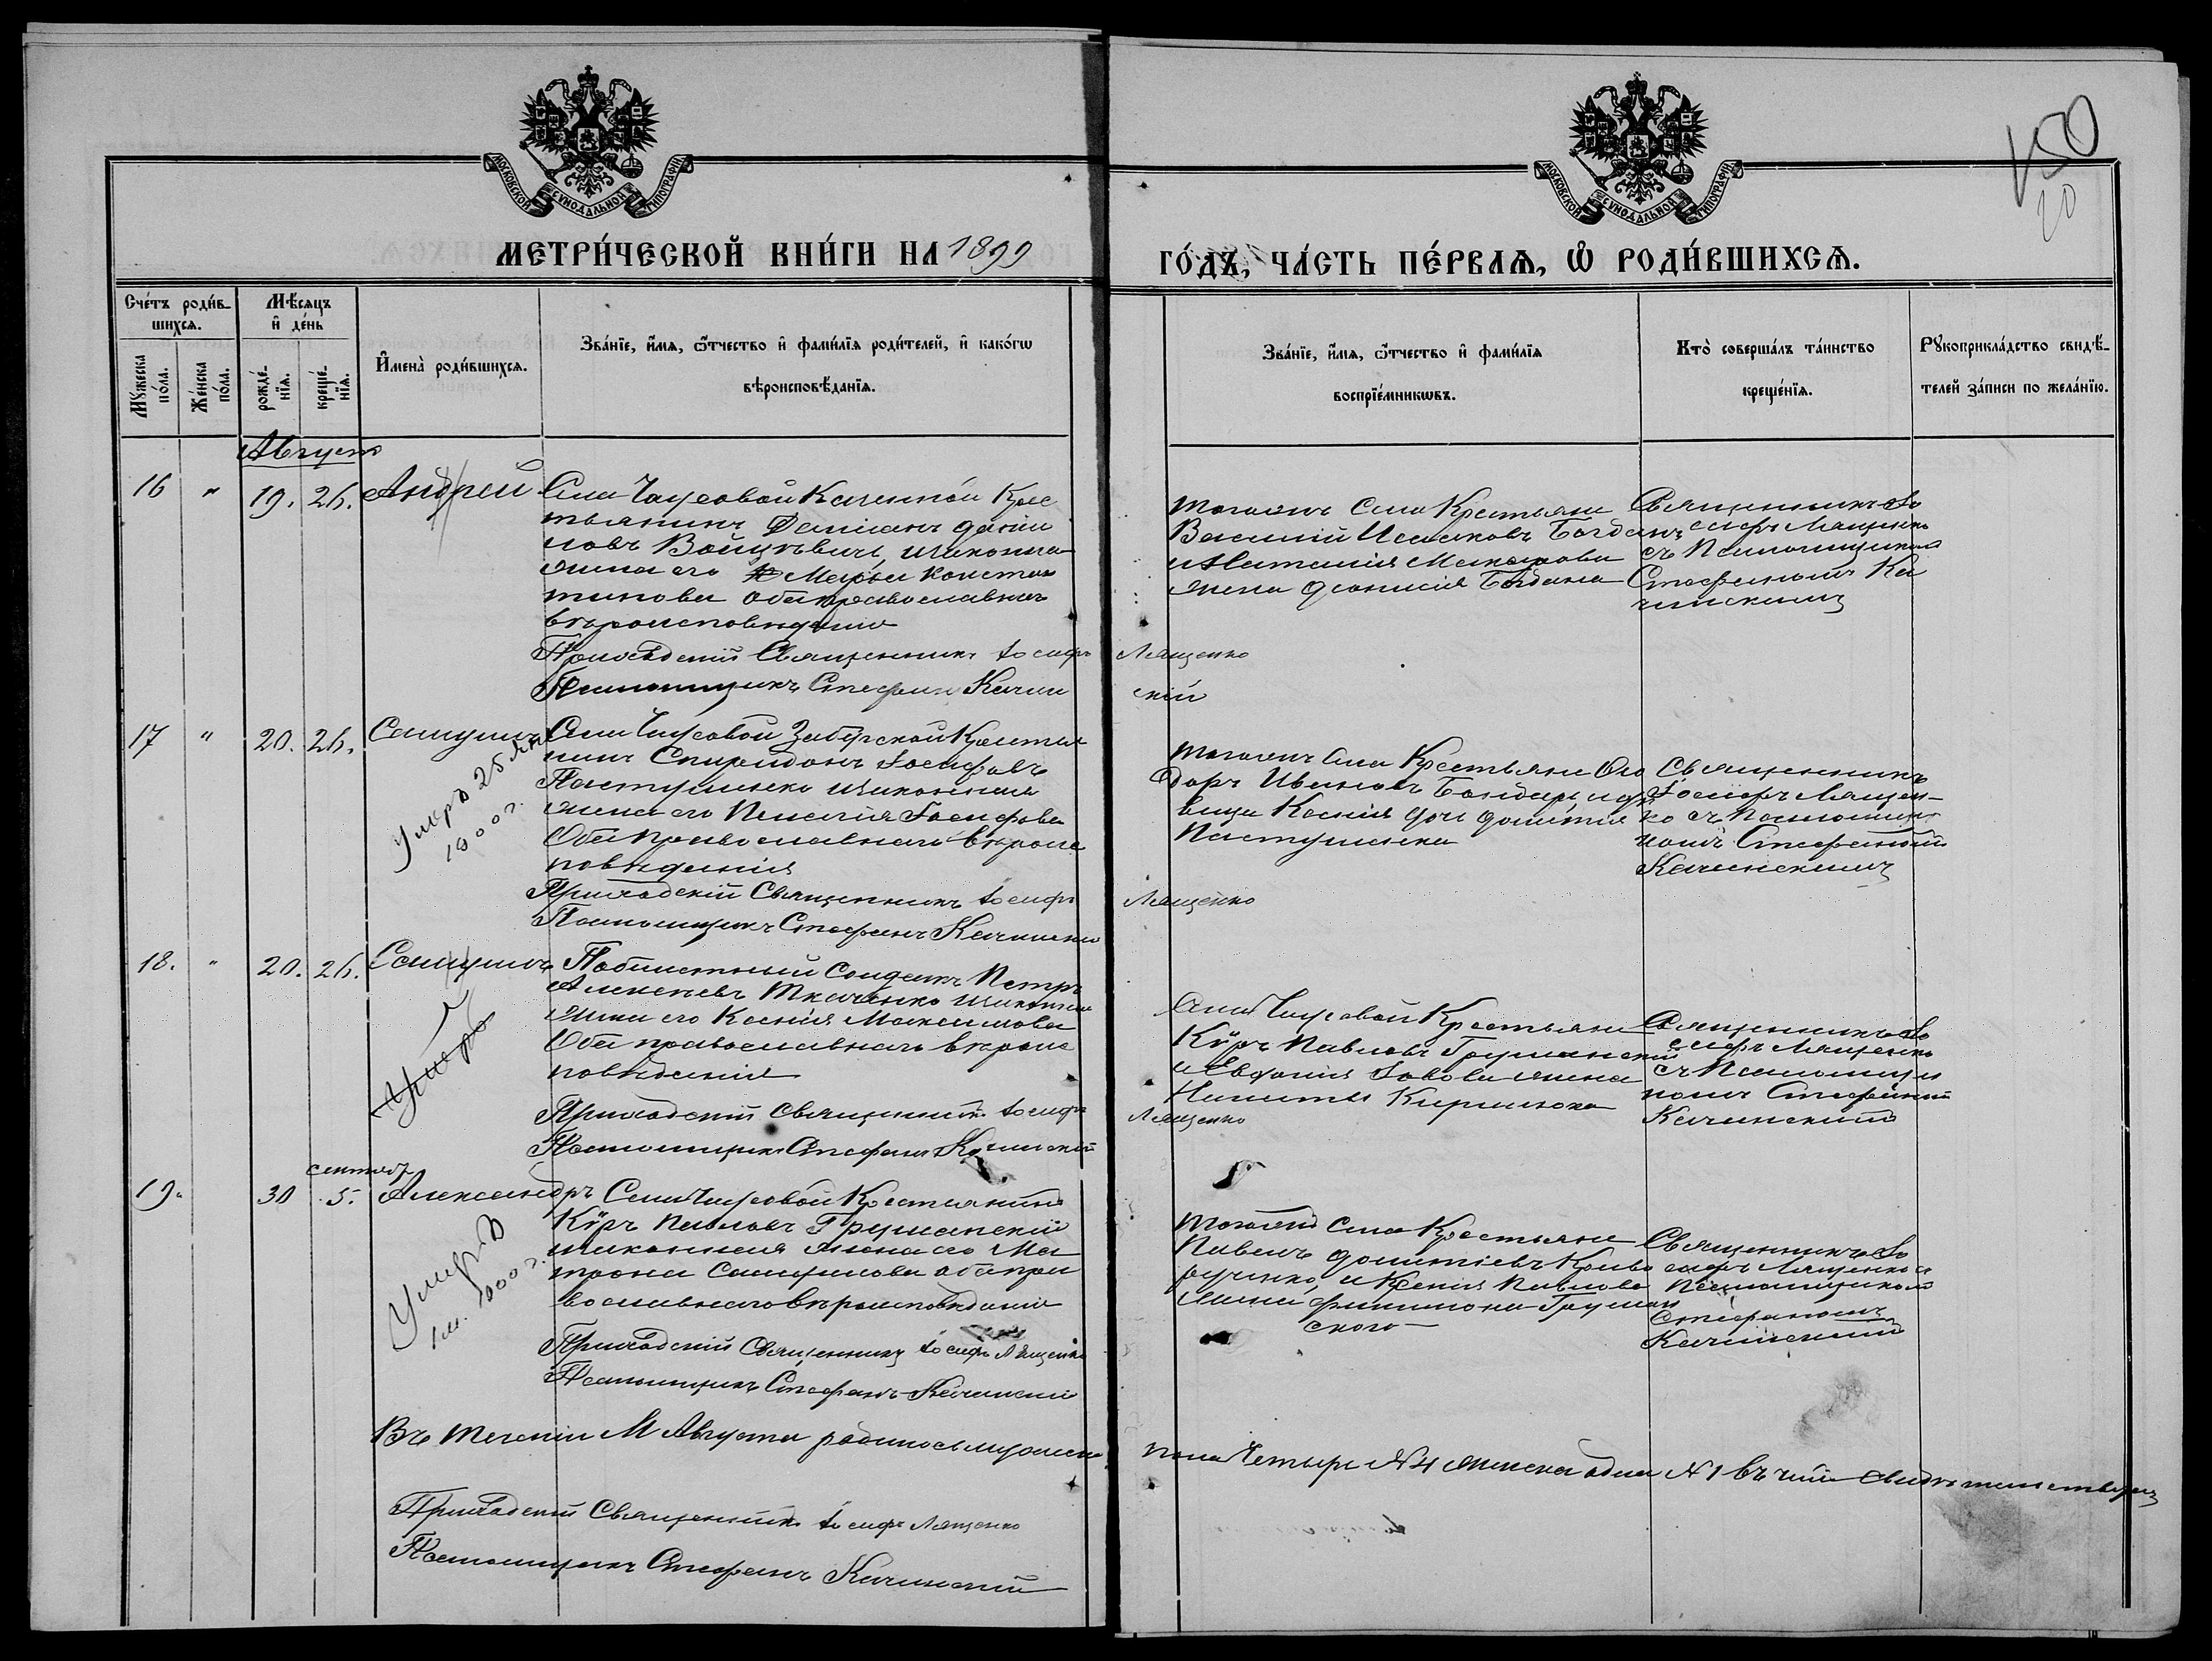 150
20
МОСКОВСКОЙ СѴНОДАЛЬНОЙ ТИПОГРАФІИ
МОСКОВСКОЙ СѴНОДАЛЬНОЙ ТИПОГРАФІИ
МЕТРИ́ЧЕСКОЙ КНИ́ГИ НА 1899
ГО́ДЪ, ЧА́СТЬ ПЕ́РВАѦ, Ѡ҆ РОДИ́ВШИХСѦ.
Сче́тъ роди́в-
шихсѧ.
Мѣ́сѧцъ
и҆ де́нь
Мꙋ́жеска
по́ла.
Же́нска
по́ла.
рожде́-
нїѧ.
креще́-
нїѧ.
И҆мена̀ роди́вшихсѧ.
Зва́нїе, и҆́мѧ, ѻ҆́тчество и҆ фами́лїѧ роди́телей, и҆ како́гѡ
вѣроисповѣ́данїѧ.
Зва́нїе, и҆́мѧ, ѻ҆́тчество и҆ фами́лїѧ
воспрїе́мникѡвъ.
Кто̀ соверша́лъ та́инство
креще́нїѧ.
Рꙋкоприкла́дство свидѣ́-
телей за́писи по жела́нїю.
Августъ
16 " 19. 26. Андрей
Села Чаусовой Каменной Крес
тьянинъ Даміанъ Дані
ловъ Войцѣвичъ, и законна
жена его Марѳа Констан
тинова оба православнаго
вѣроисповѣданія
Приходскій Священникъ Іосифъ Лященко
Псаломщикъ Стефанъ Качин скій
Тогожъ села Крестьяне
Василій Исааковъ Богданъ
и Наталія
жена Діонисія Богдана
Священникъ Іо
сифъ Лященко
съ Псаломщикомъ
Стефаномъ Ка
чинскимъ
17 " 20. 26. Самуилъ
Умеръ 25
1900 г.
Села Чаусовой Забугской Крестья
нинъ Спиридонъ Іосифовъ
Пастушенко и законная
жена его Пелагія Іосифова
Оба православнаго вѣроис
повѣданія
Приходскій Священникъ Іосифъ Лященко
Псаломщикъ Стефанъ Качински
Тогожъ села Крестьяне Ѳео
доръ Ивановъ Бондарь, и дѣ
вица Ксенія дочь Дометія
Пастушенка
Священникъ
Іосифъ Лящен-
ко съ Псаломщи
комъ Стефаномъ
Качинскимъ
18. " 20. 26. Самуилъ
Умеръ
Побилетный Солдатъ Петръ
Алексѣевъ Ткаченко и законная
жена его Ксенія Максимова
Оба православнаго вѣроис
повѣданія
Приходскій Священникъ Іосифъ Лященко
Псаломщикъ Стефанъ Качинскій
Села Чаусовой Крестьяне
Кѵръ Павловъ Грушанскій
и Евфимія Іовова жена
Никиты Кирилюка
Священникъ Іо
сифъ Лященко
съ Псаломщи
комъ Стефаномъ
Качинскимъ
сентябр
19. 30 5. Александръ
Умеръ
1900 г.
Села Чаусовой Крестьянинъ
Кѵръ Павловъ Грушанскій
и законная жена его Ма
трона Самуилова оба пра
вославнаго вѣроисповѣданія
Приходскій Священникъ Іосифъ Лященко
Псаломщикъ Стефанъ Качинскій
Тогожъ села Крестьяне
Павелъ Дометіевъ Криво
рученко, и Ксенія Павлова
жена Филимона Грушан
ского
Священникъ Іо
сифъ Лященко съ
Псаломщикомъ
Стефаномъ
Качинскимъ
Въ теченіи М Августа родилось мужеска пола Четыре №4 женска одна №1 въ чемъ свидѣтельствуемъ
Приходскій Священникъ Іосифъ Лященко
Псаломщикъ Стефанъ Качинскій